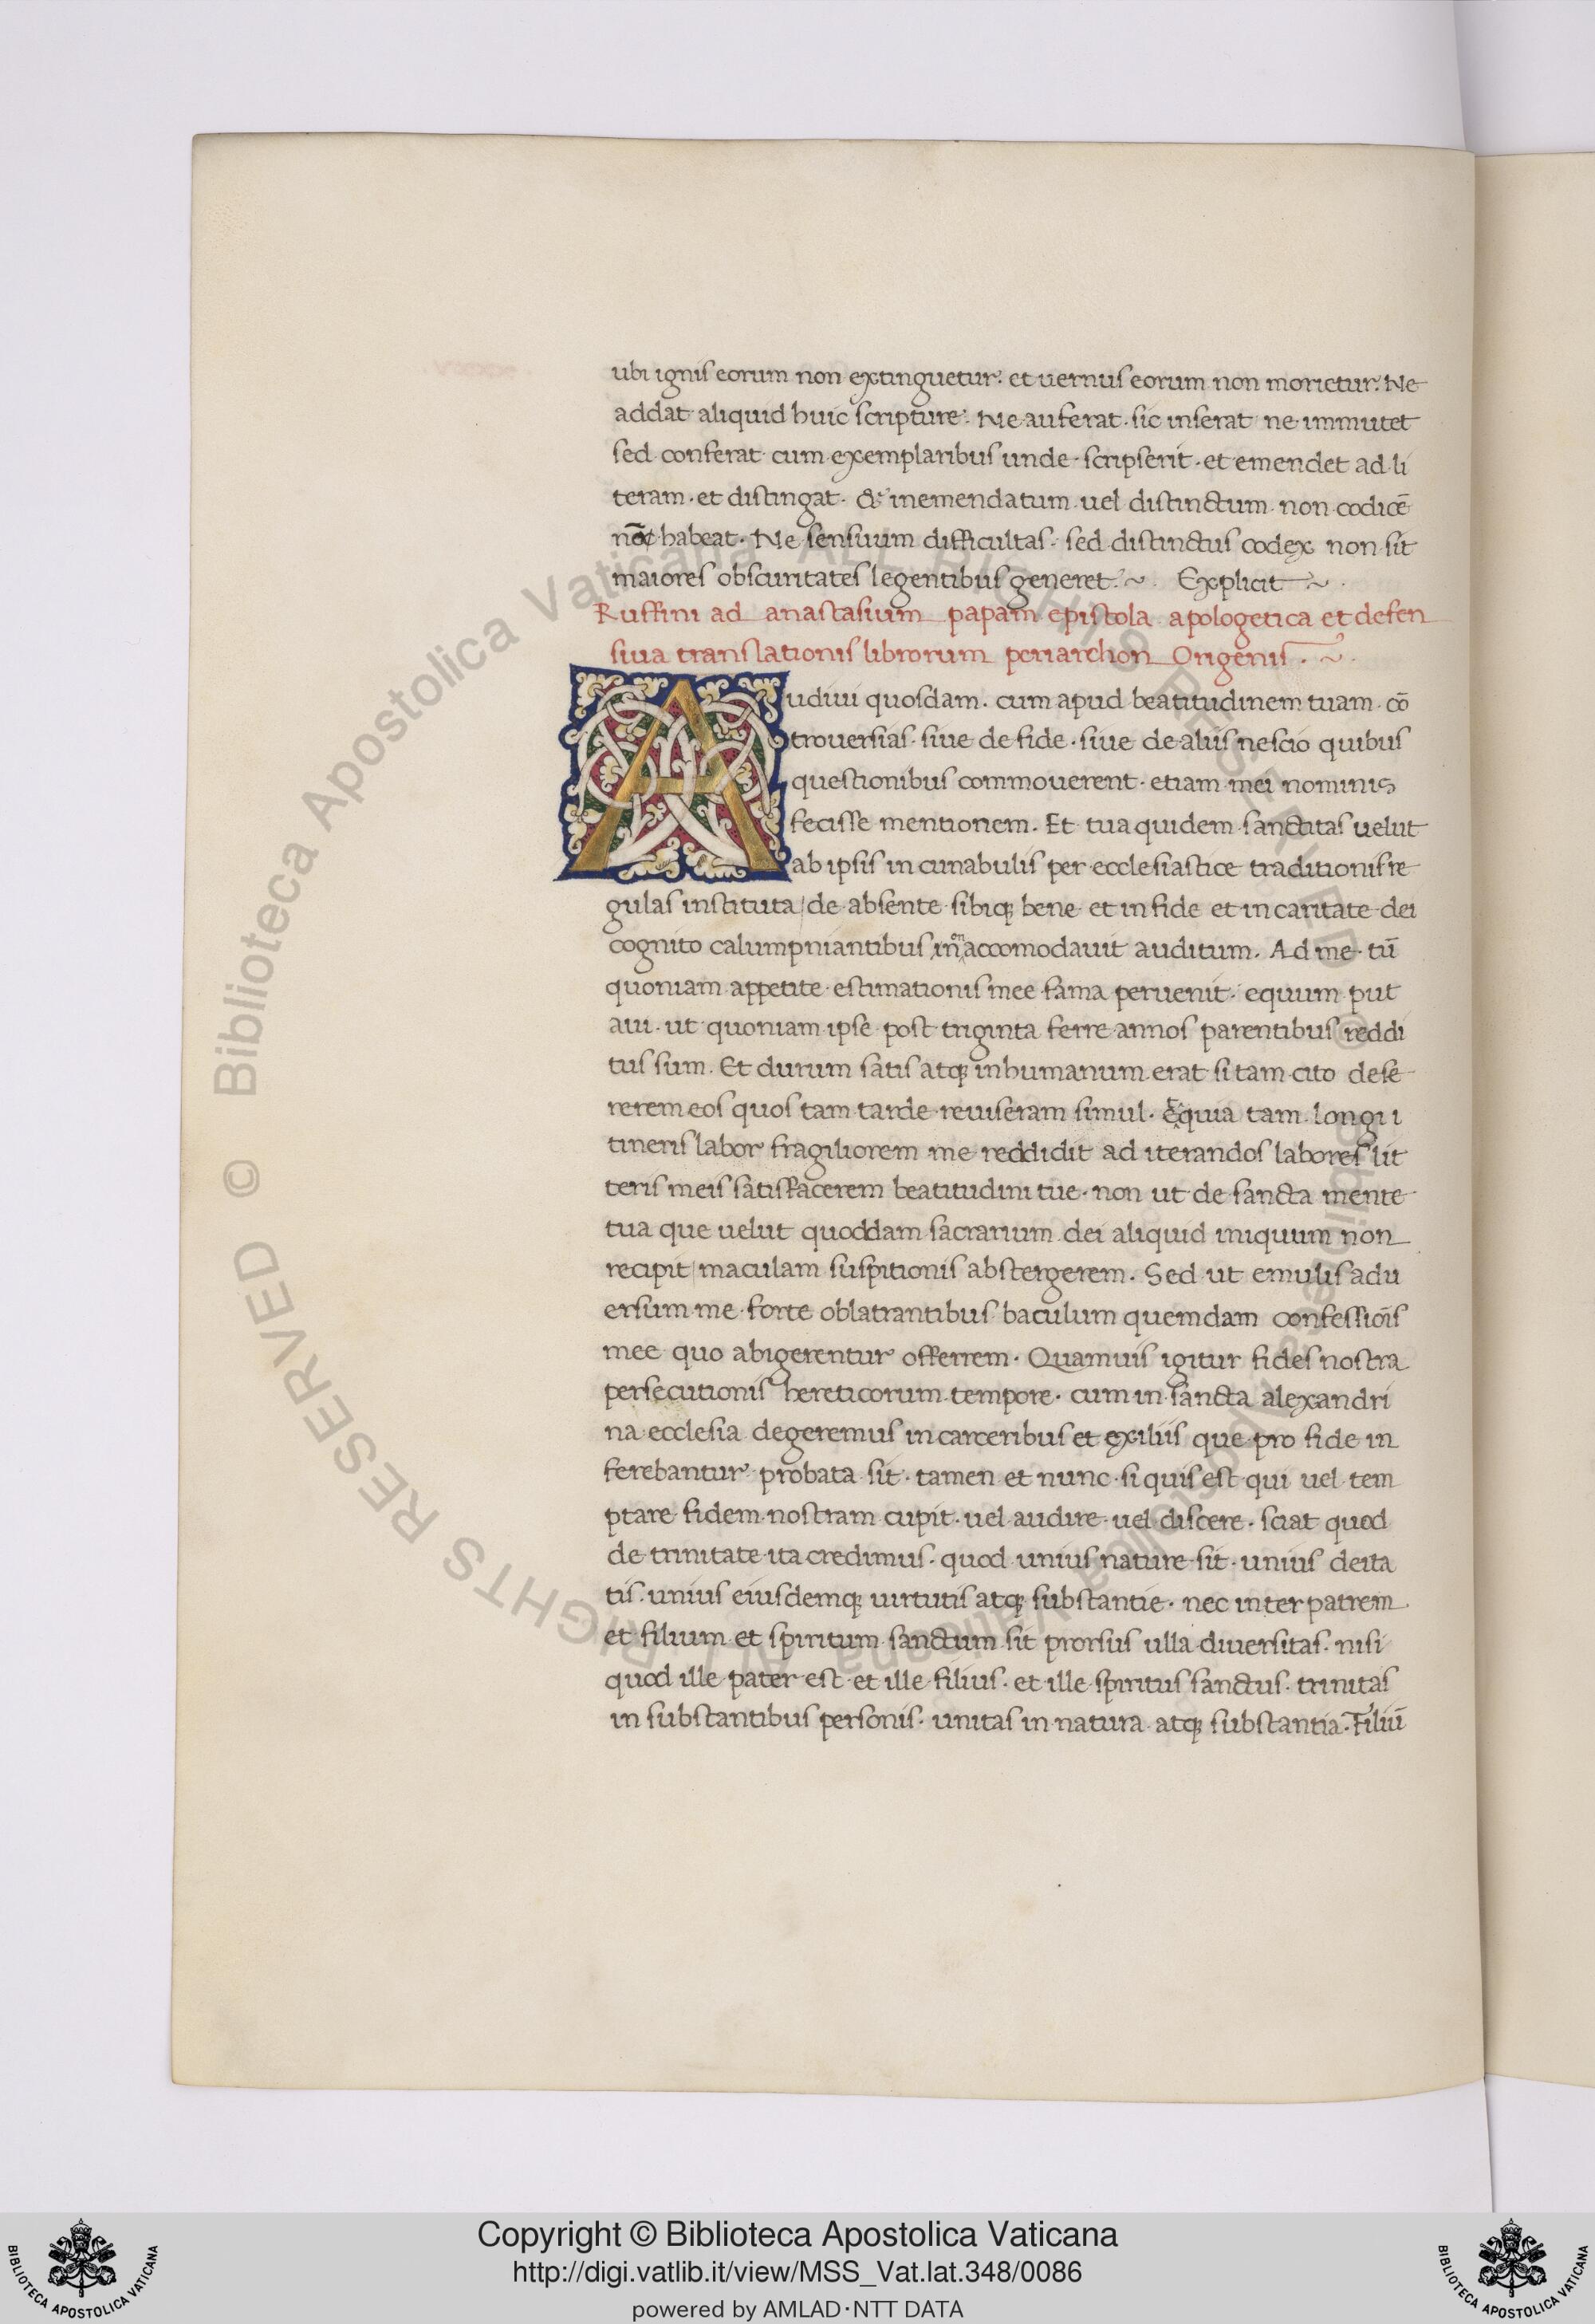 ubi ignis eorum non extinguetur. et uermis eorum non morietur. Ne
addat aliquid huic scripture. Ne auferat. sic inserat ne immutet
sed conferat cum exemplaribus unde scripserit. et emendet ad li
teram. et distingat. & inemendatum uel distinctum non codicē
habeat. Ne sensuum difficultas. sed distinctus codex non sit
maiores obscuritates legentibus generet. ~ Explicit ~
Ruffini ad anastasium papam epistola apologetica et defen
siua translationis librorum periarchon Origenis. ~
Audiui quosdam. cum apud beatitudinem tuam. cō
trouersias. siue de fide. siue de aliis nescio quibus
questionibus commouerent. etiam mei nominis
fecisse mentionem. Et tua quidem sanctitas uelut
ab ipsis in cunabulis per ecclesiastice traditionis re
gulas instituta / de absente sibiqꝫ bene et in fide et in caritate dei
cognito calumpniantibus non accomodauit auditum. Ad me. tū
quoniam appetite estimationis mee fama peruenit. equum put
aui. ut quoniam ipse post triginta ferre annos parentibus reddi
tus sum. Et durum satis atqꝫ inhumanum erat si tam cito dese
rerem eos quos tam tarde reuiseram simul. Et quia tam longi i
tineris labor fragiliorem me reddidit ad iterandos labores lit
teris meis satisfacerem beatitudini tue. non ut de sancta mente
tua que uelut quoddam sacrarium dei aliquid iniquum non
recipit / maculam suspitionis abstergerem. Sed ut emulis adu
ersum me forte oblatrantibus baculum quemdam confessiōis
mee quo abigerentur offerrem. Quamuis igitur fides nostra
persecutionis hereticorum tempore. cum in sancta alexandri
na ecclesia degeremus in carceribus et exiliis que pro fide in
ferebantur probata sit. tamen et nunc. si quis est qui uel tem
ptare fidem nostram cupit. uel audire. uel discere. sciat quod
de trinitate ita credimus. quod unius nature sit. unius deita
tis. unius eiusdemqꝫ uirtutis atqꝫ substantie. nec inter patrem
et filium et spiritum sanctum sit prorsus ulla diuersitas. nisi
quod ille pater est et ille filius. et ille spiritus sanctus. trinitas
in substantibus personis. unitas in natura atqꝫ substantia. Filiū
© Biblioteca Apostolica Vaticana ALL RIGHTS RESERVED © Biblioteca Apostolica Vaticana ALL RIGHTS RESERVED
Copyright © Biblioteca Apostolica Vaticana
http://digi.vatlib.it/view/MSS_Vat.lat.348/0086
powered by AMLAD·NTT DATA
BIBLIOTECA APOSTOLICA VATICANA
BIBLIOTECA APOSTOLICA VATICANA